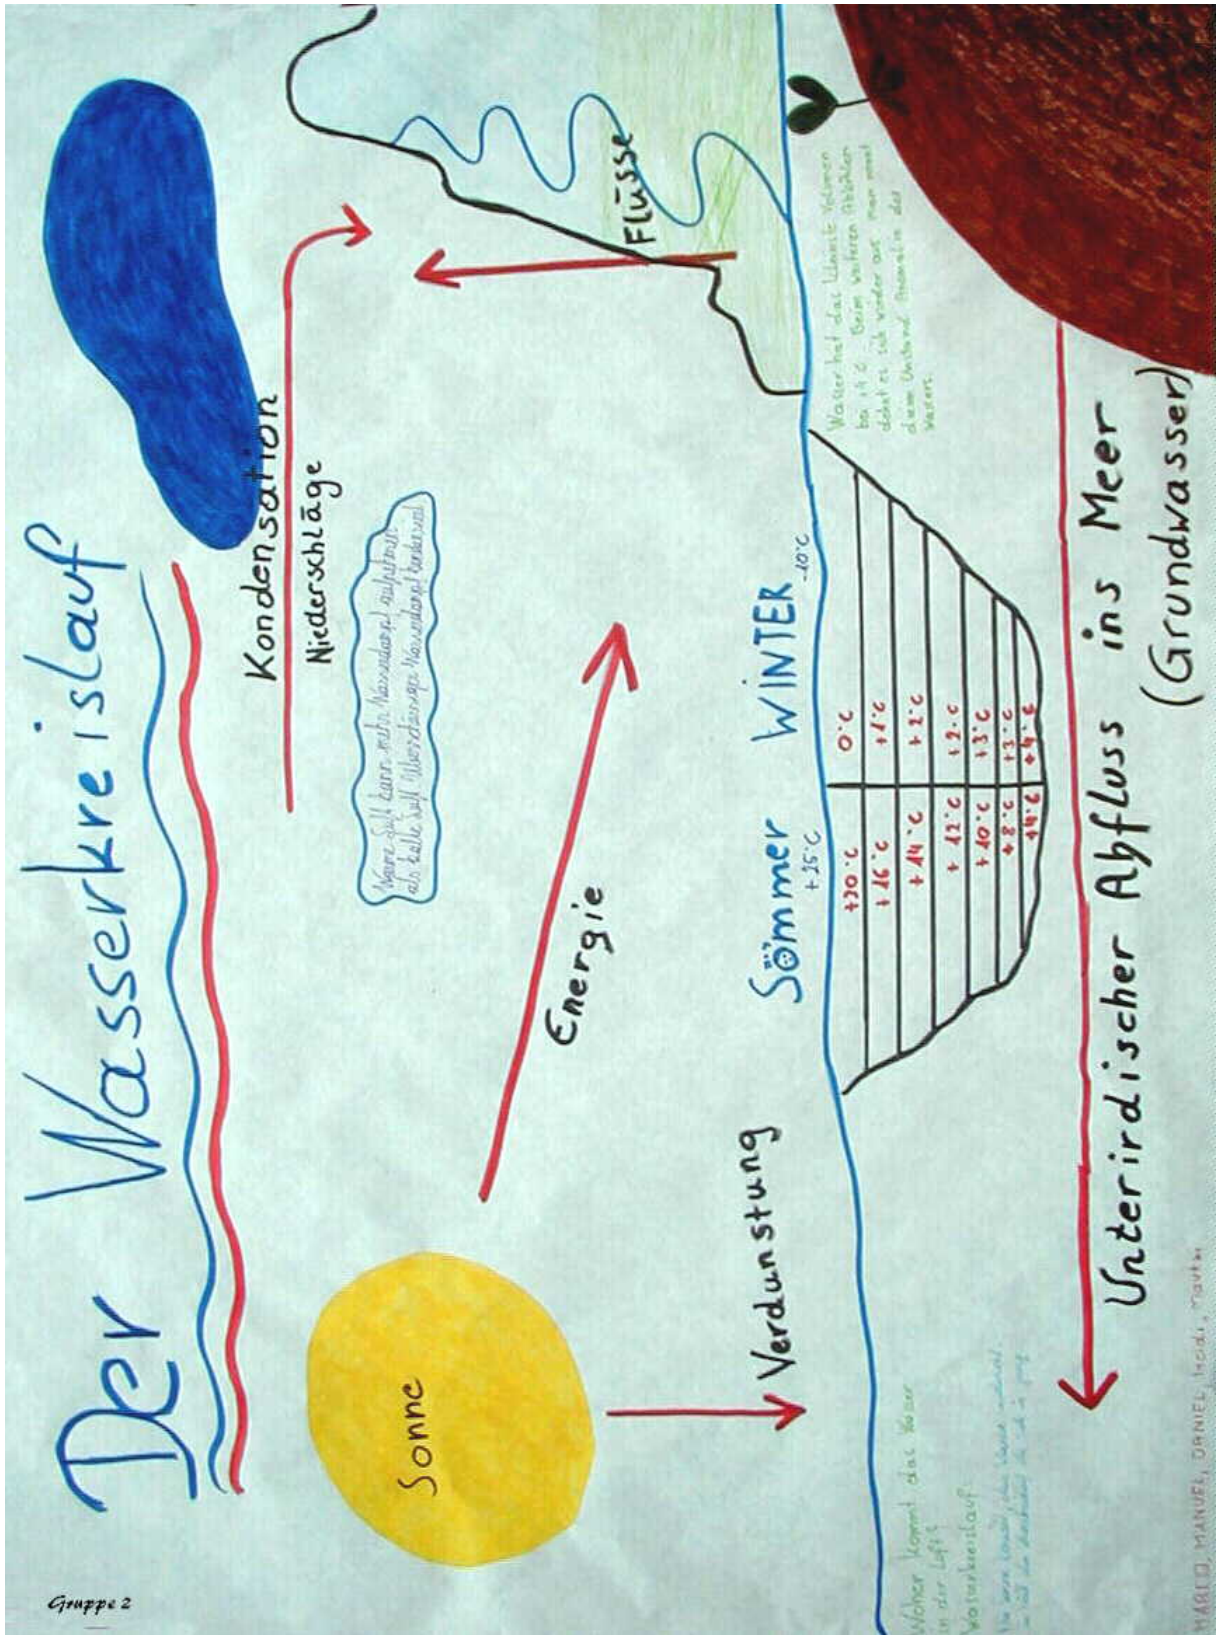 Gruppe 2
Der Wasserkreislauf
Kondensation
Niederschläge
Warme Luft kann mehr Wasserdampf aufnehmen
als kalte Luft Überschüssiger Wasserdampf kondensiert
Sonne
Energie
Flüsse
Verdunstung
Sommer WINTER
+25°C -10°C
+20°C 0°C
+16°C +1°C
+14°C +2°C
+12°C +2°C
+10°C +3°C
+8°C +3°C
+4°C +4°C
Wasser hat das kleinste Volumen
bei +4°C Beim weiteren Abkühlen
dehnt es sich wieder aus man nennt
diesen Umstand Anomalie des
Wassers
Woher kommt das Wasser
in der Luft?
Wasserkreislauf:
Unterirdischer Abfluss ins Meer
(Grundwasser)
MARCO, MANUEL, DANIEL, Heidi, Martin